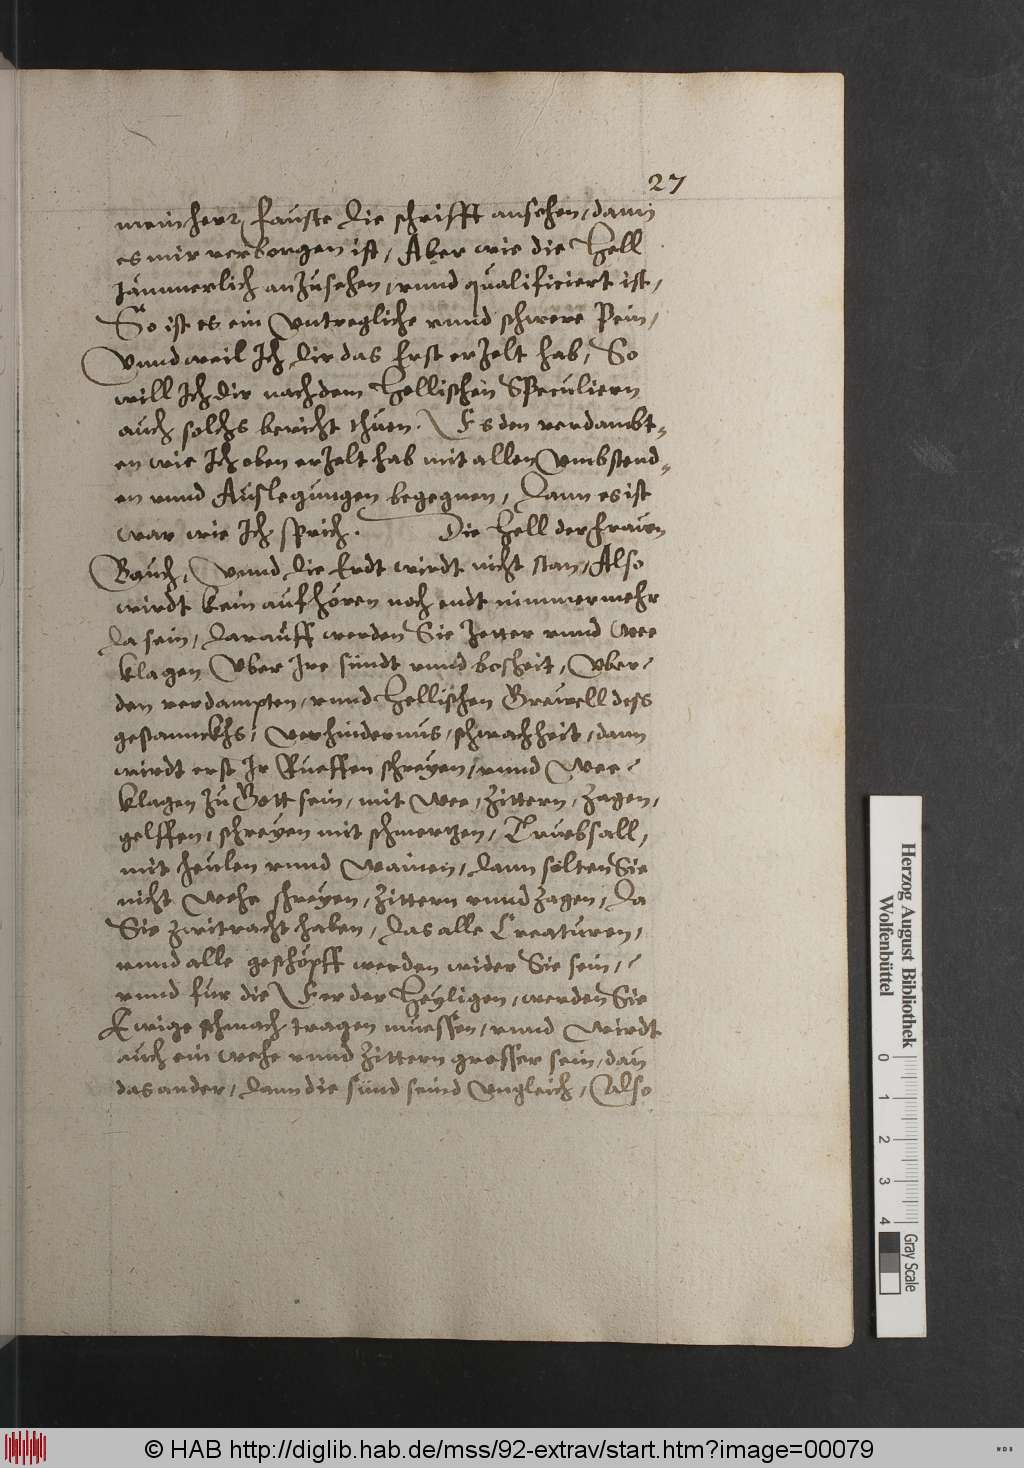 27
mein herr Fauste die schrifft ansehen, dann
es mir verborgen ist, Aber wie die Hell
Jämmerlich anzusehen, vnnd qualificiert ist,
So ist es ein Vntregliche vnnd schwere Pein,
Vnnd weil Ich dir das Erst erzelt hab, So
will Ich dir nach dem Hellischen Speculiern
auch solchs bericht thuen. Es den verdambt-
en wie Ich oben erzelt hab mit allen Vmbstend-
en vnnd Auslegungen begegnen, dann es ist
war wie Ich sprich. Die Hell der frauen
Bauch, Vnnd die Erdt wirdt nicht stan, Also
wirdt kein aufhören noch endt nimmermehr
da sein, darauff werden Sie Zetter vnnd Wee
klagen Vber Ire sündt vnnd bosheit, Vber
den verdampten, vnnd Hellischen Grewell dess
gestannckhs, Verhindernus, schwachheit, dann
wirdt erst Ir Rueffen schreyen, vnnd Wee
klagen zu Gott sein, mit Wee, Zittern, Zagen,
gelffen, schreyen mit schmertzen, Truebsall,
mit heulen vnnd Wainen, dann solten Sie
nicht Wehe schreyen, Zittern vnnd Zagen, da
Sie Zwitracht haben, das alle Creaturen,
vnnd alle geschöpff werden wider Sie sein,
vnnd fur die Eer der Heyligen, werden Sie
Ewige schmach tragen muessen, vnnd Wirdt
auch ein Wehe vnnd Zittern grosser sein, dan
das ander, dann die sünd seind Vngleich, Also
Herzog August Bibliothek
Wolfenbüttel
0 1 2 3 4
Gray Scale
© HAB http://diglib.hab.de/mss/92-extrav/start.htm?image=00079
WDB